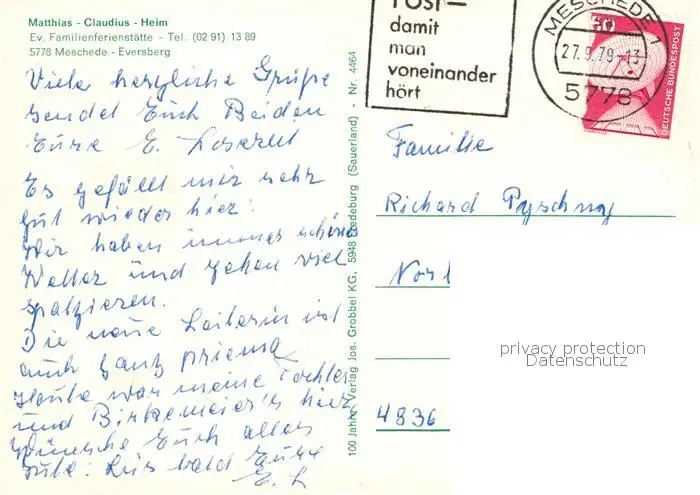 Matthias - Claudius - Heim
Ev. Familienferienstätte - Tel. (02 91) 13 89
5778 Meschede - Eversberg
Viele herzliche Grüße
sendet Euch Beiden
Eure E.
Es gefällt mir sehr
gut wieder hier.
Wir haben immer schönes
Wetter und gehen viel
spatzieren.
Die neue Leiterin ist
auch ganz prima
Heute war meine Tochter
und Birkemeier's hier
Wünsche Euch alles
Gute. Bis bald Eure
E. L
100 Jahre Verlag Jos. Grobbel KG, 5948 Fredeburg (Sauerland) - Nr. 4464
POST—
damit
man
voneinander
hört
MESCHEDE 1
27.9.79-13
5778
50
DEUTSCHE BUNDESPOST
Familie
Richard
4836
privacy protection
Datenschutz